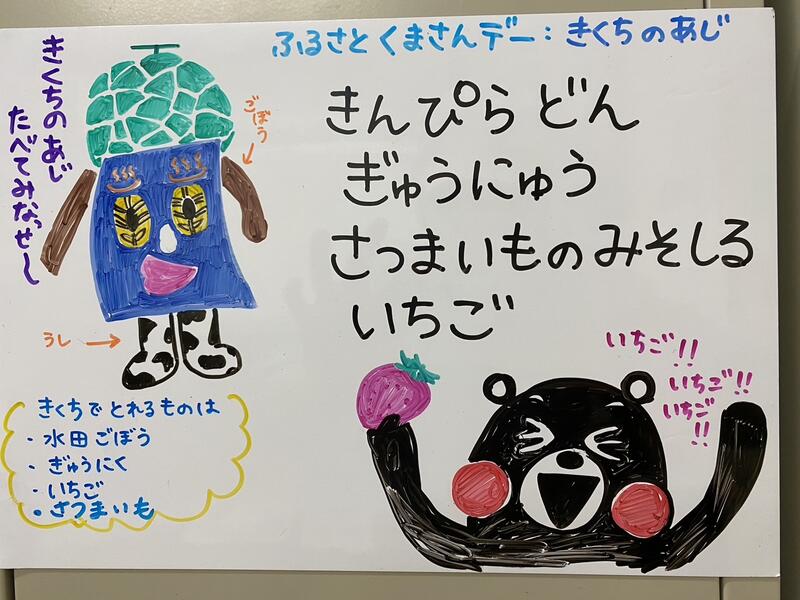 ふるさとくまさんデー：きくちのあじ
きくちのあじ
たべてみなっせ〜
ごぼう
きんぴらどん
ぎゅうにゅう
さつまいものみそしる
いちご
うし
きくちでとれるものは
・水田ごぼう
・ぎゅうにく
・いちご
・さつまいも
いちご!!
いちご!!
いちご!!